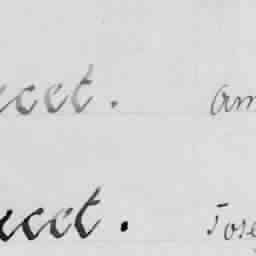 ecet. Am
ecet. Jose